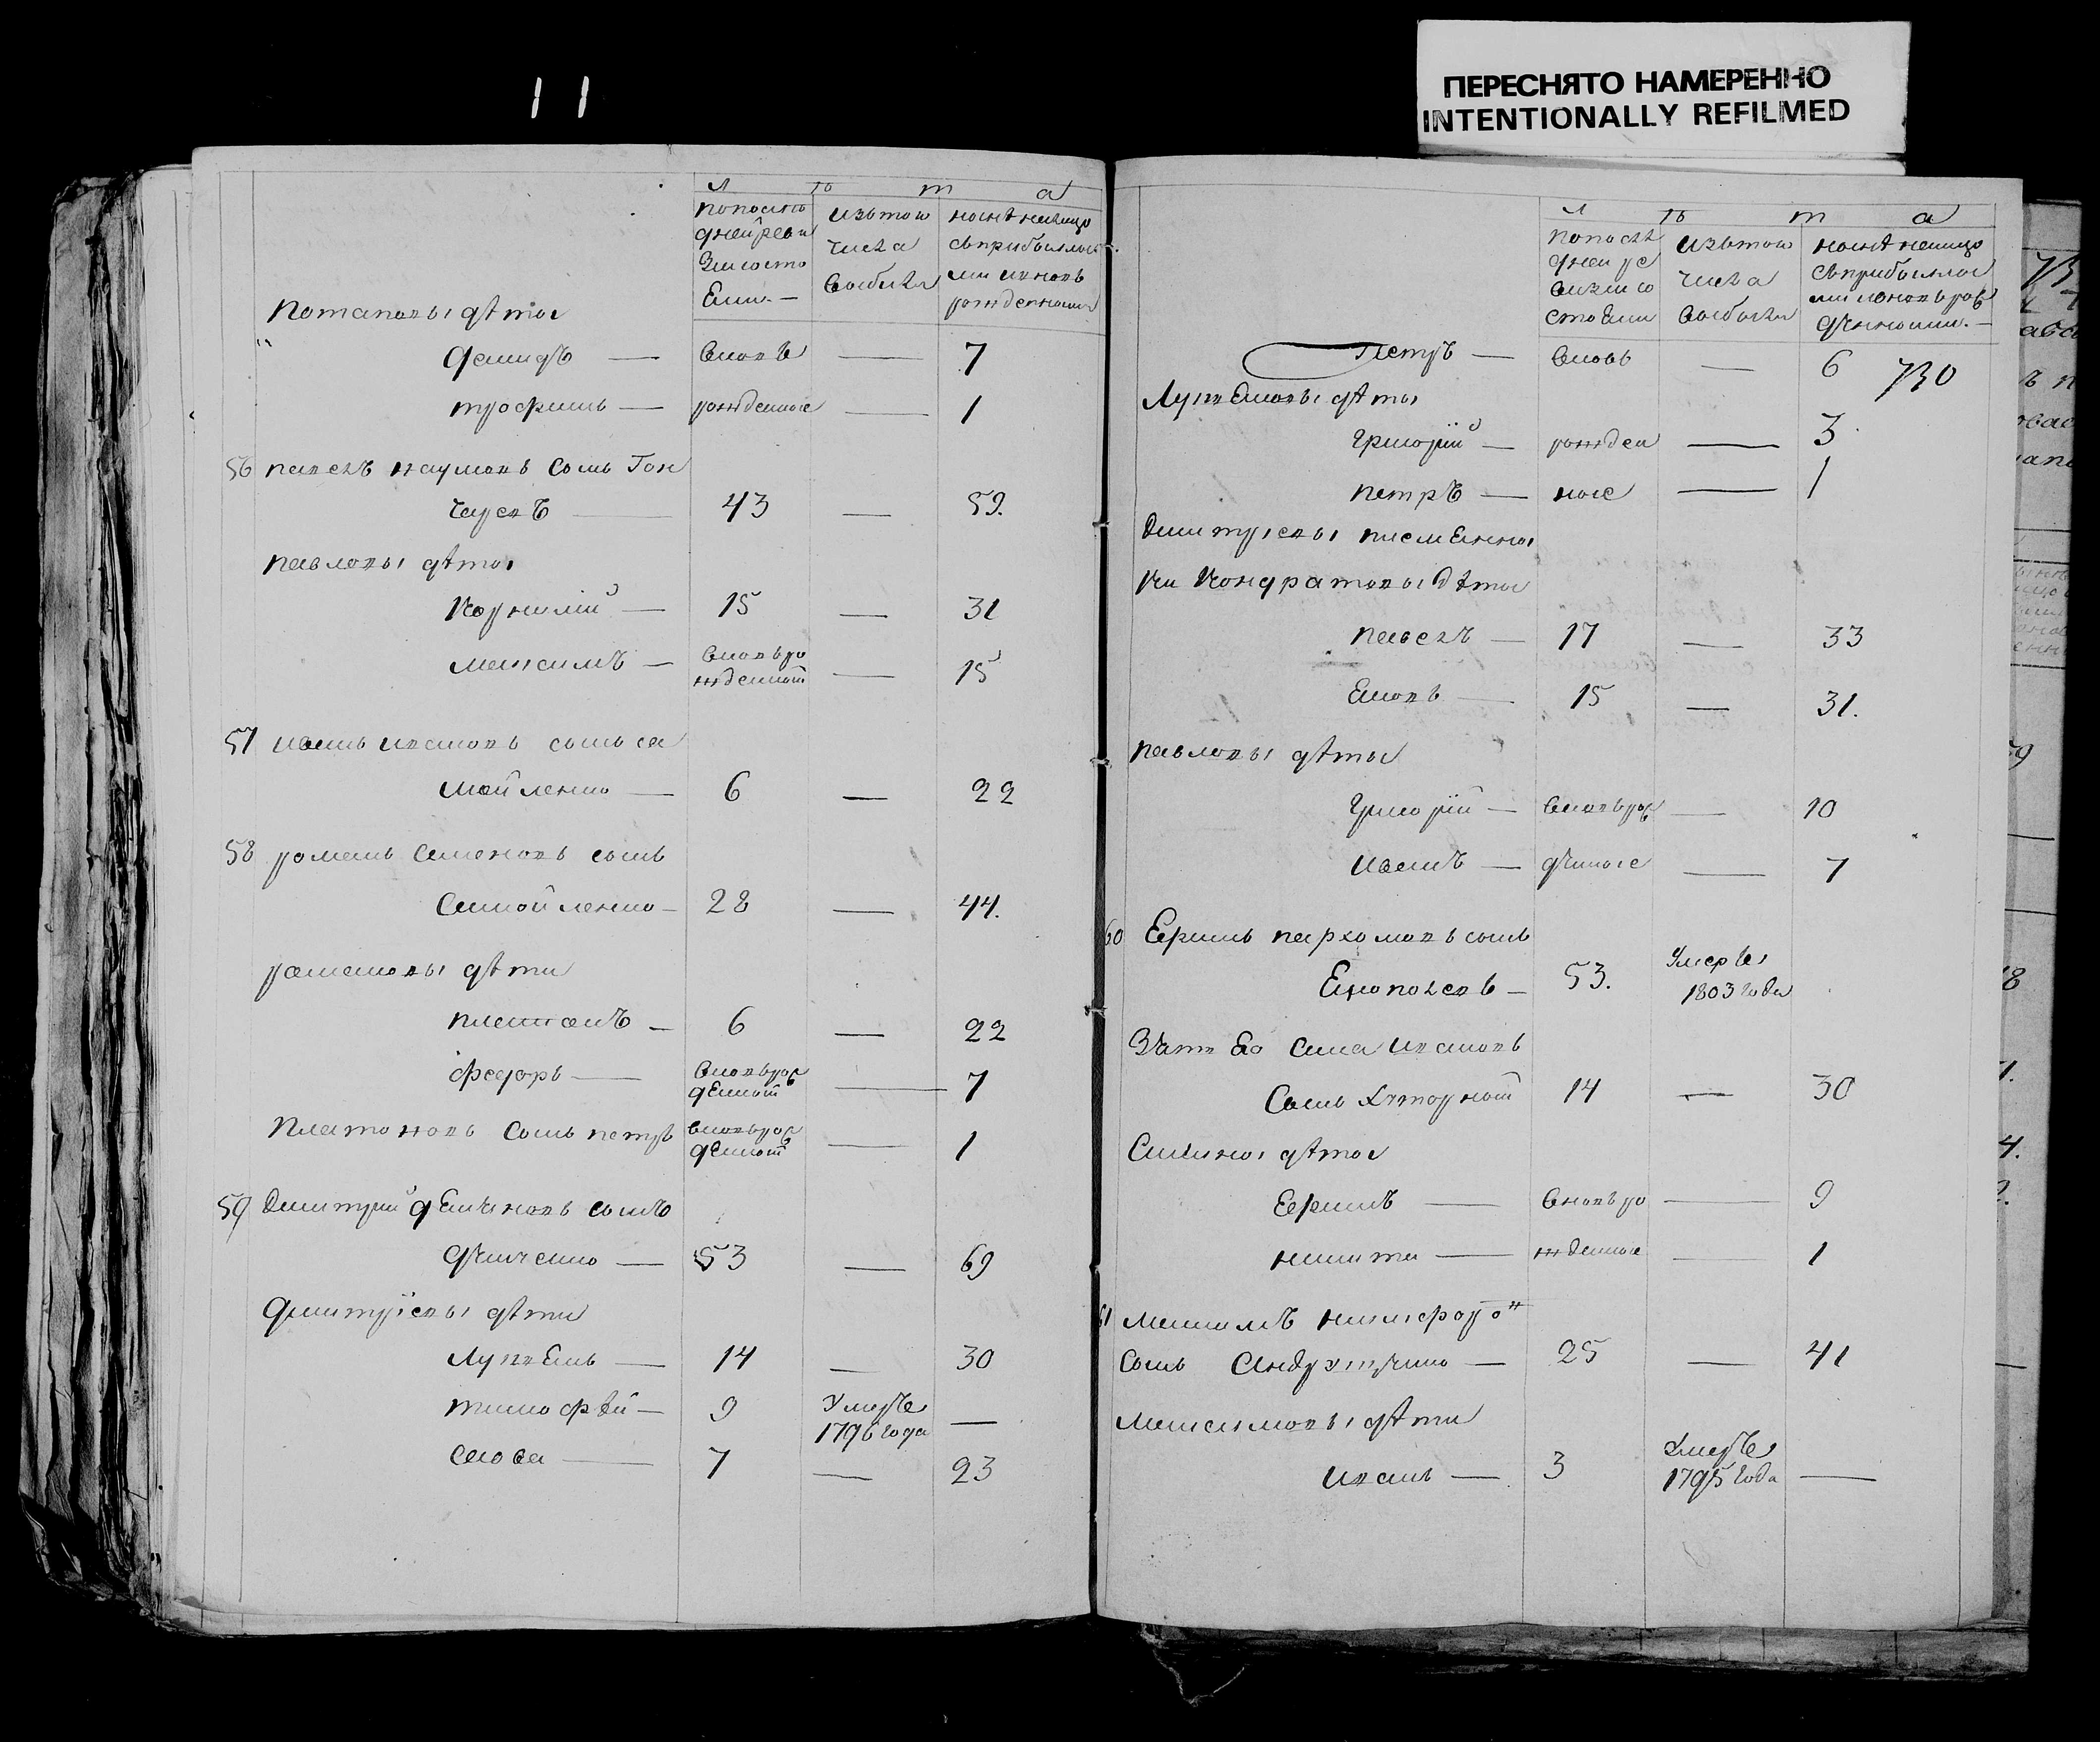 11
ПЕРЕСНЯТО НАМЕРЕННО
INTENTIONALLY REFILMED
л ѣ т а
Попослѣ
дней реви
зии состо
яли —
изътого
числа
выбыло
нынѣ налицо
съприбылы
ми ивновь
рожденными
Потаповы дѣти
Демидъ — вновь — 7
трофимъ — рожденные — 1
56 павелъ наумовъ сынъ Гон
чаревъ — 43 — 59.
павловы дѣти
Корнилий — 15 — 31
максимъ — вновьро
жденный — 15
57 иванъ ивановъ сынъ са
мойленко — 6 — 22
58 романъ семеновъ сынъ
Самойленко — 28 — 44.
романовы дѣти
платонъ — 6 — 22
федоръ — вновьрож
денный — 7
Платоновъ сынъ петръ вновьрож
денный — 1
59 Дмитрий демьяновъ сынъ
53 — 69
Дмитріевы дѣти
Лупьянъ — 14 — 30
тимофѣй — 9 Умеръ
1796 года —
савва — 7 — 23
л ѣ т а
Попослѣ
дней ре
визии со
стояли
изътого
числа
выбыло
нынѣ налицо
съприбылы
ми ивновьрож
денными. —
Петръ — вновь — 6 730
Лупьяновы дѣти
григорій — рожден — 3
петръ — ные — 1
Дмитріевы племянни
ки Кондратовы дѣти
павелъ — 17 — 33
15 — 31.
павловы дѣти
григорій — вновьрож — 10
иванъ — денные — 7
60 Ефимъ пархомовъ сынъ
53. Умеръ
1803 года
Зять Его сила ивановъ
Сынъ Хуторный 14 — 30
Силины дѣти
Ефимъ — вновьро — 9
никита — жденные — 1
61 Максимъ никифоро
Сынъ — 25 — 41
Максимовы дѣти
иванъ — 3 Умеръ
1795 года —